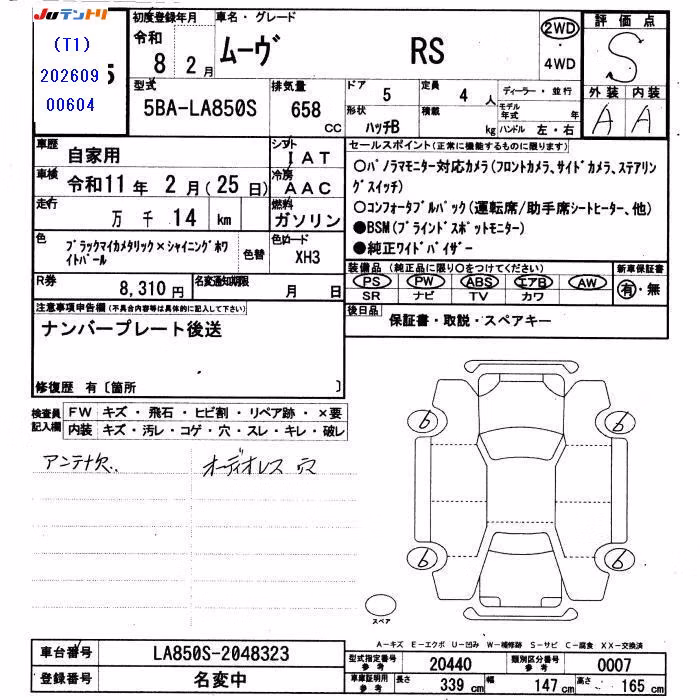 Juテントリ
(T1)
202609
00604
5
初度登録年月
令和
8 2月
車名・グレード
ムーヴ RS
2WD
・
4WD
評価点
S
外装 内装
A A
型式
5BA-LA850S
排気量
658
cc
ドア
5
定員
4 人
形状
ハッチB
積載
kg
ディーラー・並行
モデル年式 年
ハンドル 左・右
車歴 自家用
シフト
IAT
車検 令和11年 2月(25日)
冷房
AAC
走行 万 千 14 km
燃料
ガソリン
色 ブラックマイカメタリック×シャイニングホワイトパール
色替
色コード
XH3
R券 8,310円
名変通知期限 月 日
セールスポイント(正常に機能するものに限ります)
○パノラマモニター対応カメラ(フロントカメラ、サイドカメラ、ステアリン
グスイッチ)
○コンフォータブルパック(運転席/助手席シートヒーター、他)
●BSM(ブラインドスポットモニター)
●純正ワイドバイザー
装備品(純正品に限り○をつけてください)
PS PW ABS エアB AW
SR ナビ TV カワ
新車保証書
有・無
後日品 保証書・取説・スペアキー
注意事項申告欄(不具合内容等は具体的に記入して下さい)
ナンバープレート後送
修復歴 有〔箇所 〕
検査員
記入欄
FW キズ・飛石・ヒビ割・リペア跡・×要
内装 キズ・汚レ・コゲ・穴・スレ・キレ・破レ
アンテナ欠、 オーディオレス 穴
6 6
6 6
スペア
A-キズ E-エクボ U-凹み W-補修跡 S-サビ C-腐食 XX-交換済
車台番号 LA850S-2048323
登録番号 名変中
型式指定番号
参考
20440
類別区分番号
参考
0007
車庫証明用
参考
長さ 339cm
幅 147cm
高さ 165cm